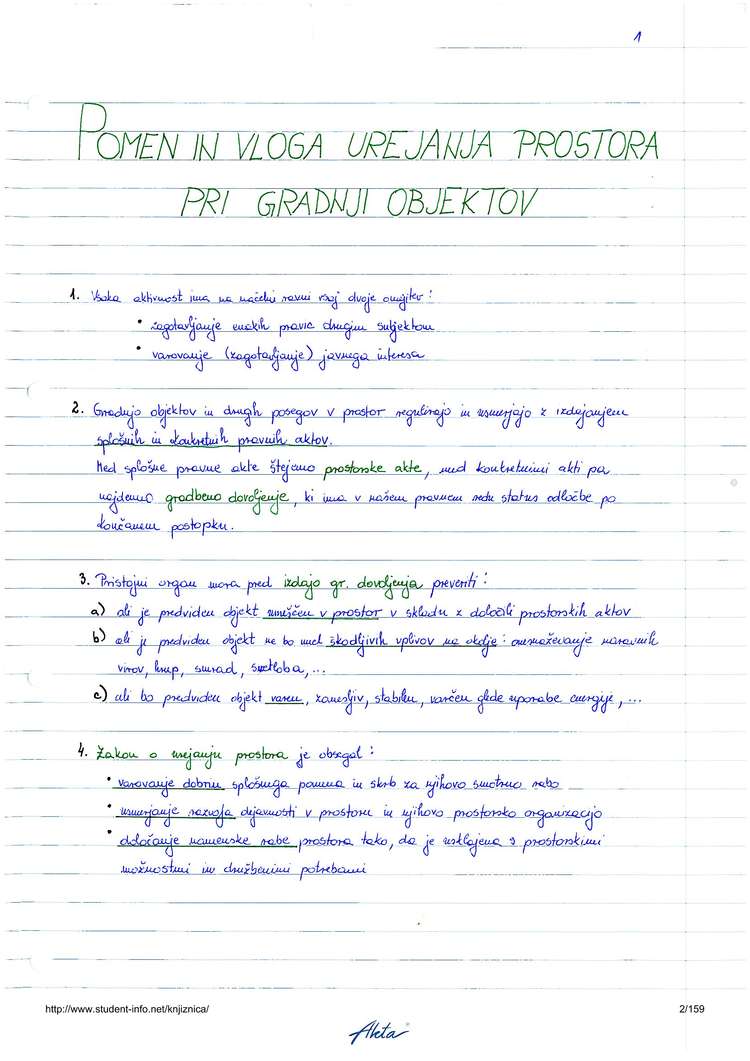 1
POMEN IN VLOGA UREJANJA PROSTORA
PRI GRADNJI OBJEKTOV
1. Vsaka aktivnost ima na načelni ravni vsaj dvoje omejitev:
• zagotavljanje enakih pravic drugim subjektom
• varovanje (zagotavljanje) javnega interesa
2. Gradnjo objektov in drugih posegov v prostor regulirajo in usmerjajo z izdajanjem
splošnih in konkretnih pravnih aktov.
Med splošne pravne akte štejemo prostorske akte, med konkretnimi akti pa
najdemo gradbeno dovoljenje, ki ima v našem pravnem redu status odločbe po
končanem postopku.
3. Pristojni organ mora pred izdajo gr. dovoljenja preveriti:
a) ali je predviden objekt umeščen v prostor v skladu z določili prostorskih aktov
b) ali je predviden objekt ne bo imel škodljivih vplivov na okolje: onesnaževanje naravnih
virov, hrup, smrad, svetloba, ...
c) ali bo predviden objekt varen, zanesljiv, stabilen, varčen glede uporabe energije, ...
4. Zakon o urejanju prostora je obsegal:
• varovanje dobrin splošnega pomena in skrb za njihovo smotrno rabo
• usmerjanje razvoja dejavnosti v prostoru in njihovo prostorsko organizacijo
• določanje namenske rabe prostora tako, da je usklajena s prostorskimi
možnostmi in družbenimi potrebami
http://www.student-info.net/knjiznica/
2/159
Akta